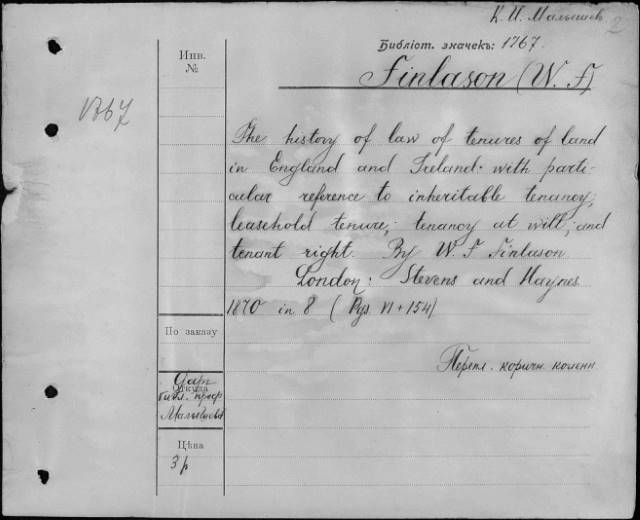 К. И. Малышев 2
Библіот. значекъ: 1767.
Finlason (W. F)
Инв.
№
1767
The history of law of tenures of land
in England and Ireland. with parti-
cular reference to inheritable tenancy;
leasehold tenure; tenancy at will; and
tenant right. By W. F Finlason
London: Stevens and Haynes
1870 in 8 (Pgs. VI + 154)
По заказу
Перепл. коричн. коленк
Дар
Откуда
библ. проф
Малышева
Цѣна
3 р